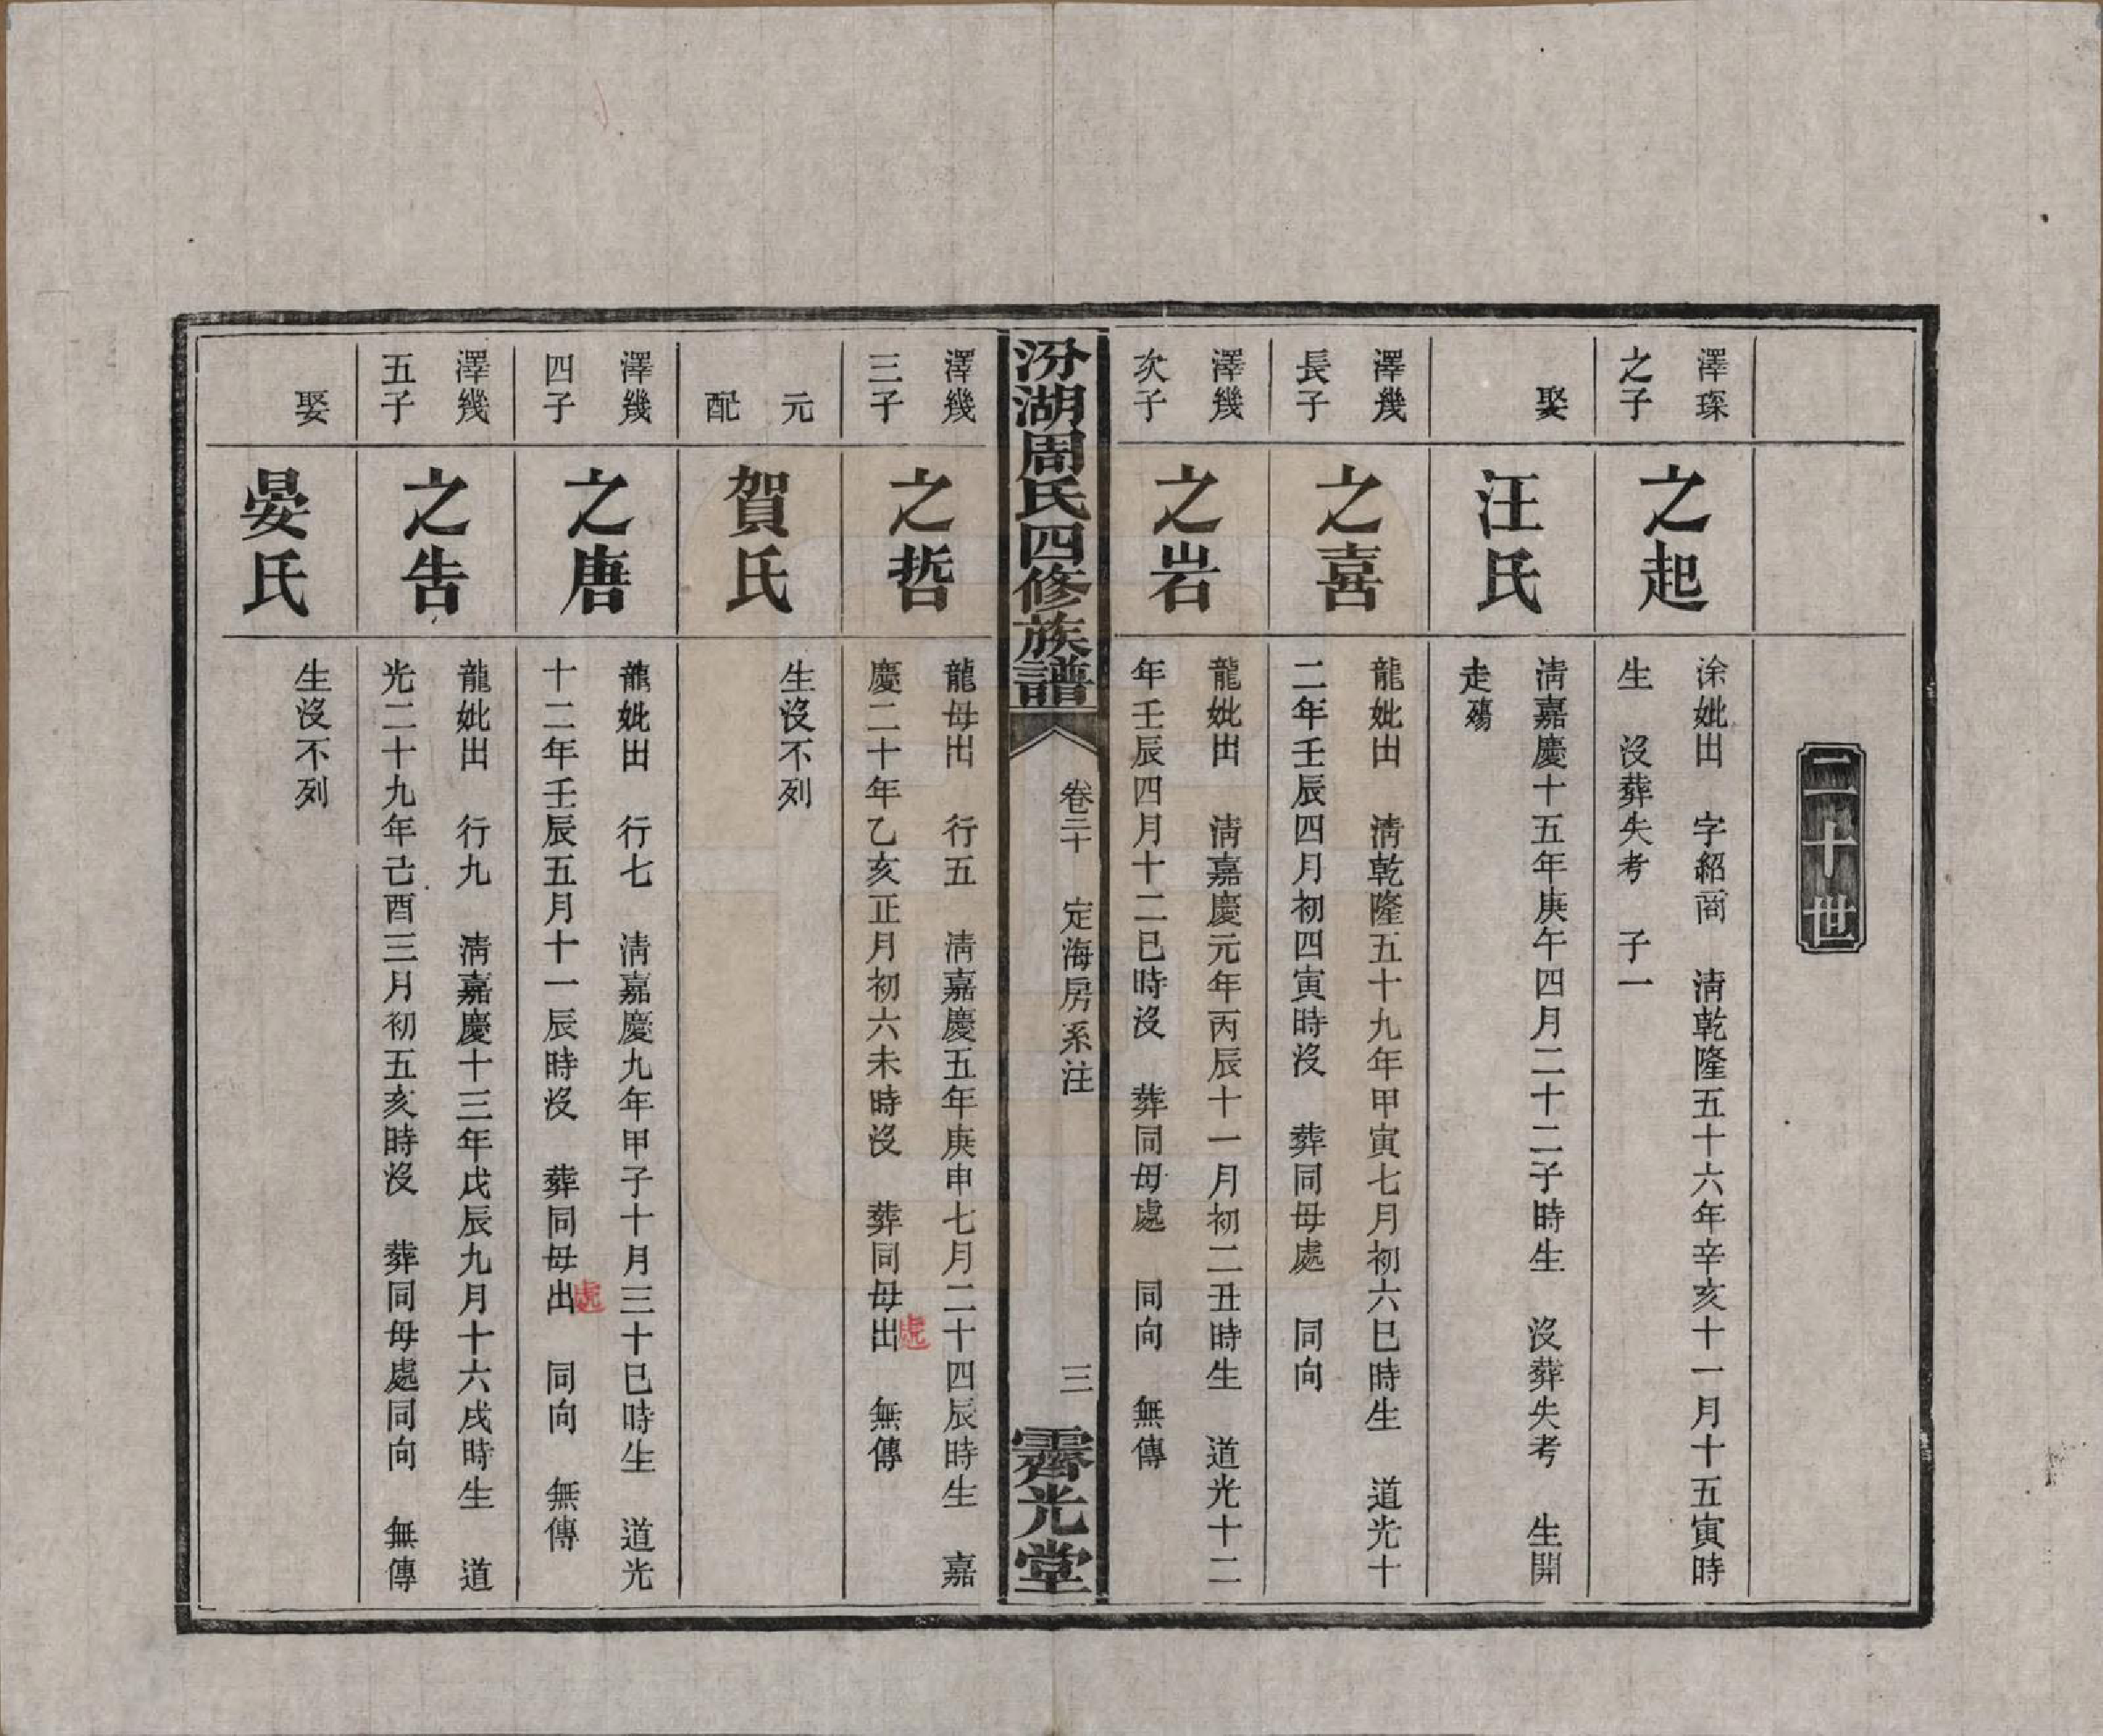 二十世
澤琛
之子
之起
涂妣出　字紹商　淸乾隆五十六年辛亥十一月十五寅時
生　沒葬失考　子一
娶
汪氏
淸嘉慶十五年庚午四月二十二子時生　沒葬失考　生開
走殤
澤幾
長子
之喜
龍妣出　淸乾隆五十九年甲寅七月初六巳時生　道光十
二年壬辰四月初四寅時沒　葬同母處　同向
澤幾
次子
之岩
龍妣出　淸嘉慶元年丙辰十一月初二丑時生　道光十二
年壬辰四月十二巳時沒　葬同母處　同向　無傳
汾湖周氏四修族譜
卷二十　定海房系注
三
霽光堂
澤幾
三子
之哲
龍母出　行五　淸嘉慶五年庚申七月二十四辰時生　嘉
慶二十年乙亥正月初六未時沒　葬同母出　無傳
處
元
配
賀氏
生沒不列
澤幾
四子
之唐
龍妣出　行七　淸嘉慶九年甲子十月三十巳時生　道光
十二年壬辰五月十一辰時沒　葬同母出　同向　無傳
處
澤幾
五子
之吿
龍妣出　行九　淸嘉慶十三年戊辰九月十六戌時生　道
光二十九年己酉三月初五亥時沒　葬同母處同向　無傳
娶
晏氏
生沒不列